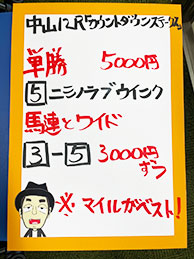 中山12Rカウントダウンステークス
単勝 5000円
5 ニシノラブウインク
馬連とワイド
3-5 3000円
ずつ
※マイルがベスト!